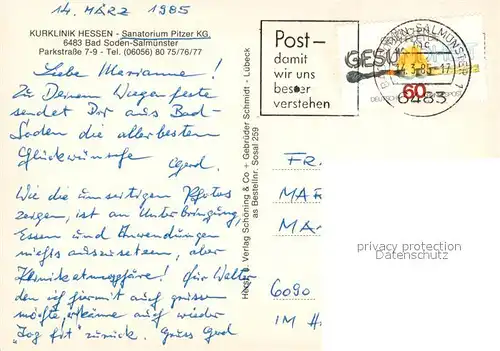 14. MÄRZ 1985
KURKLINIK HESSEN - Sanatorium Pitzer KG.
6483 Bad Soden-Salmünster
Parkstraße 7-9 - Tel. (06056) 80 75/76/77
Liebe Marianne!
Zu Deinem Wiegenfeste
sendet Dir aus Bad-
Soden die allerbesten
Glückwünsche Gerd.
Wie die umseitigen Photos
zeigen, ist an Unterbringung,
Essen und Anwendungen
nichts auszusetzen, aber
für Walter
den ich hiermit auch grüssen
möchte, käme auch wieder
"Jog fit" zurück. Gruss Gerd
Post-
damit
wir uns
besser
verstehen
GESU
60
DEUTSCHE
6483
Verlag Schöning & Co + Gebrüder Schmidt - Lübeck
as Bestellnr. Sosal 259
FR.
MAR
MA
6090
IM H
privacy protection
Datenschutz